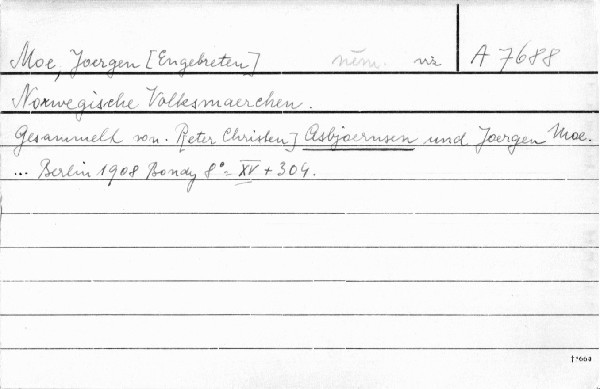 Moe, Joergen [Engebreten] něm. vz A 7688
Norwegische Volksmaerchen.
Gesammelt von. P[eter Christen] Asbjoernsen und Joergen Moe.
... Berlin 1908 Bondy 8° - XV + 304.